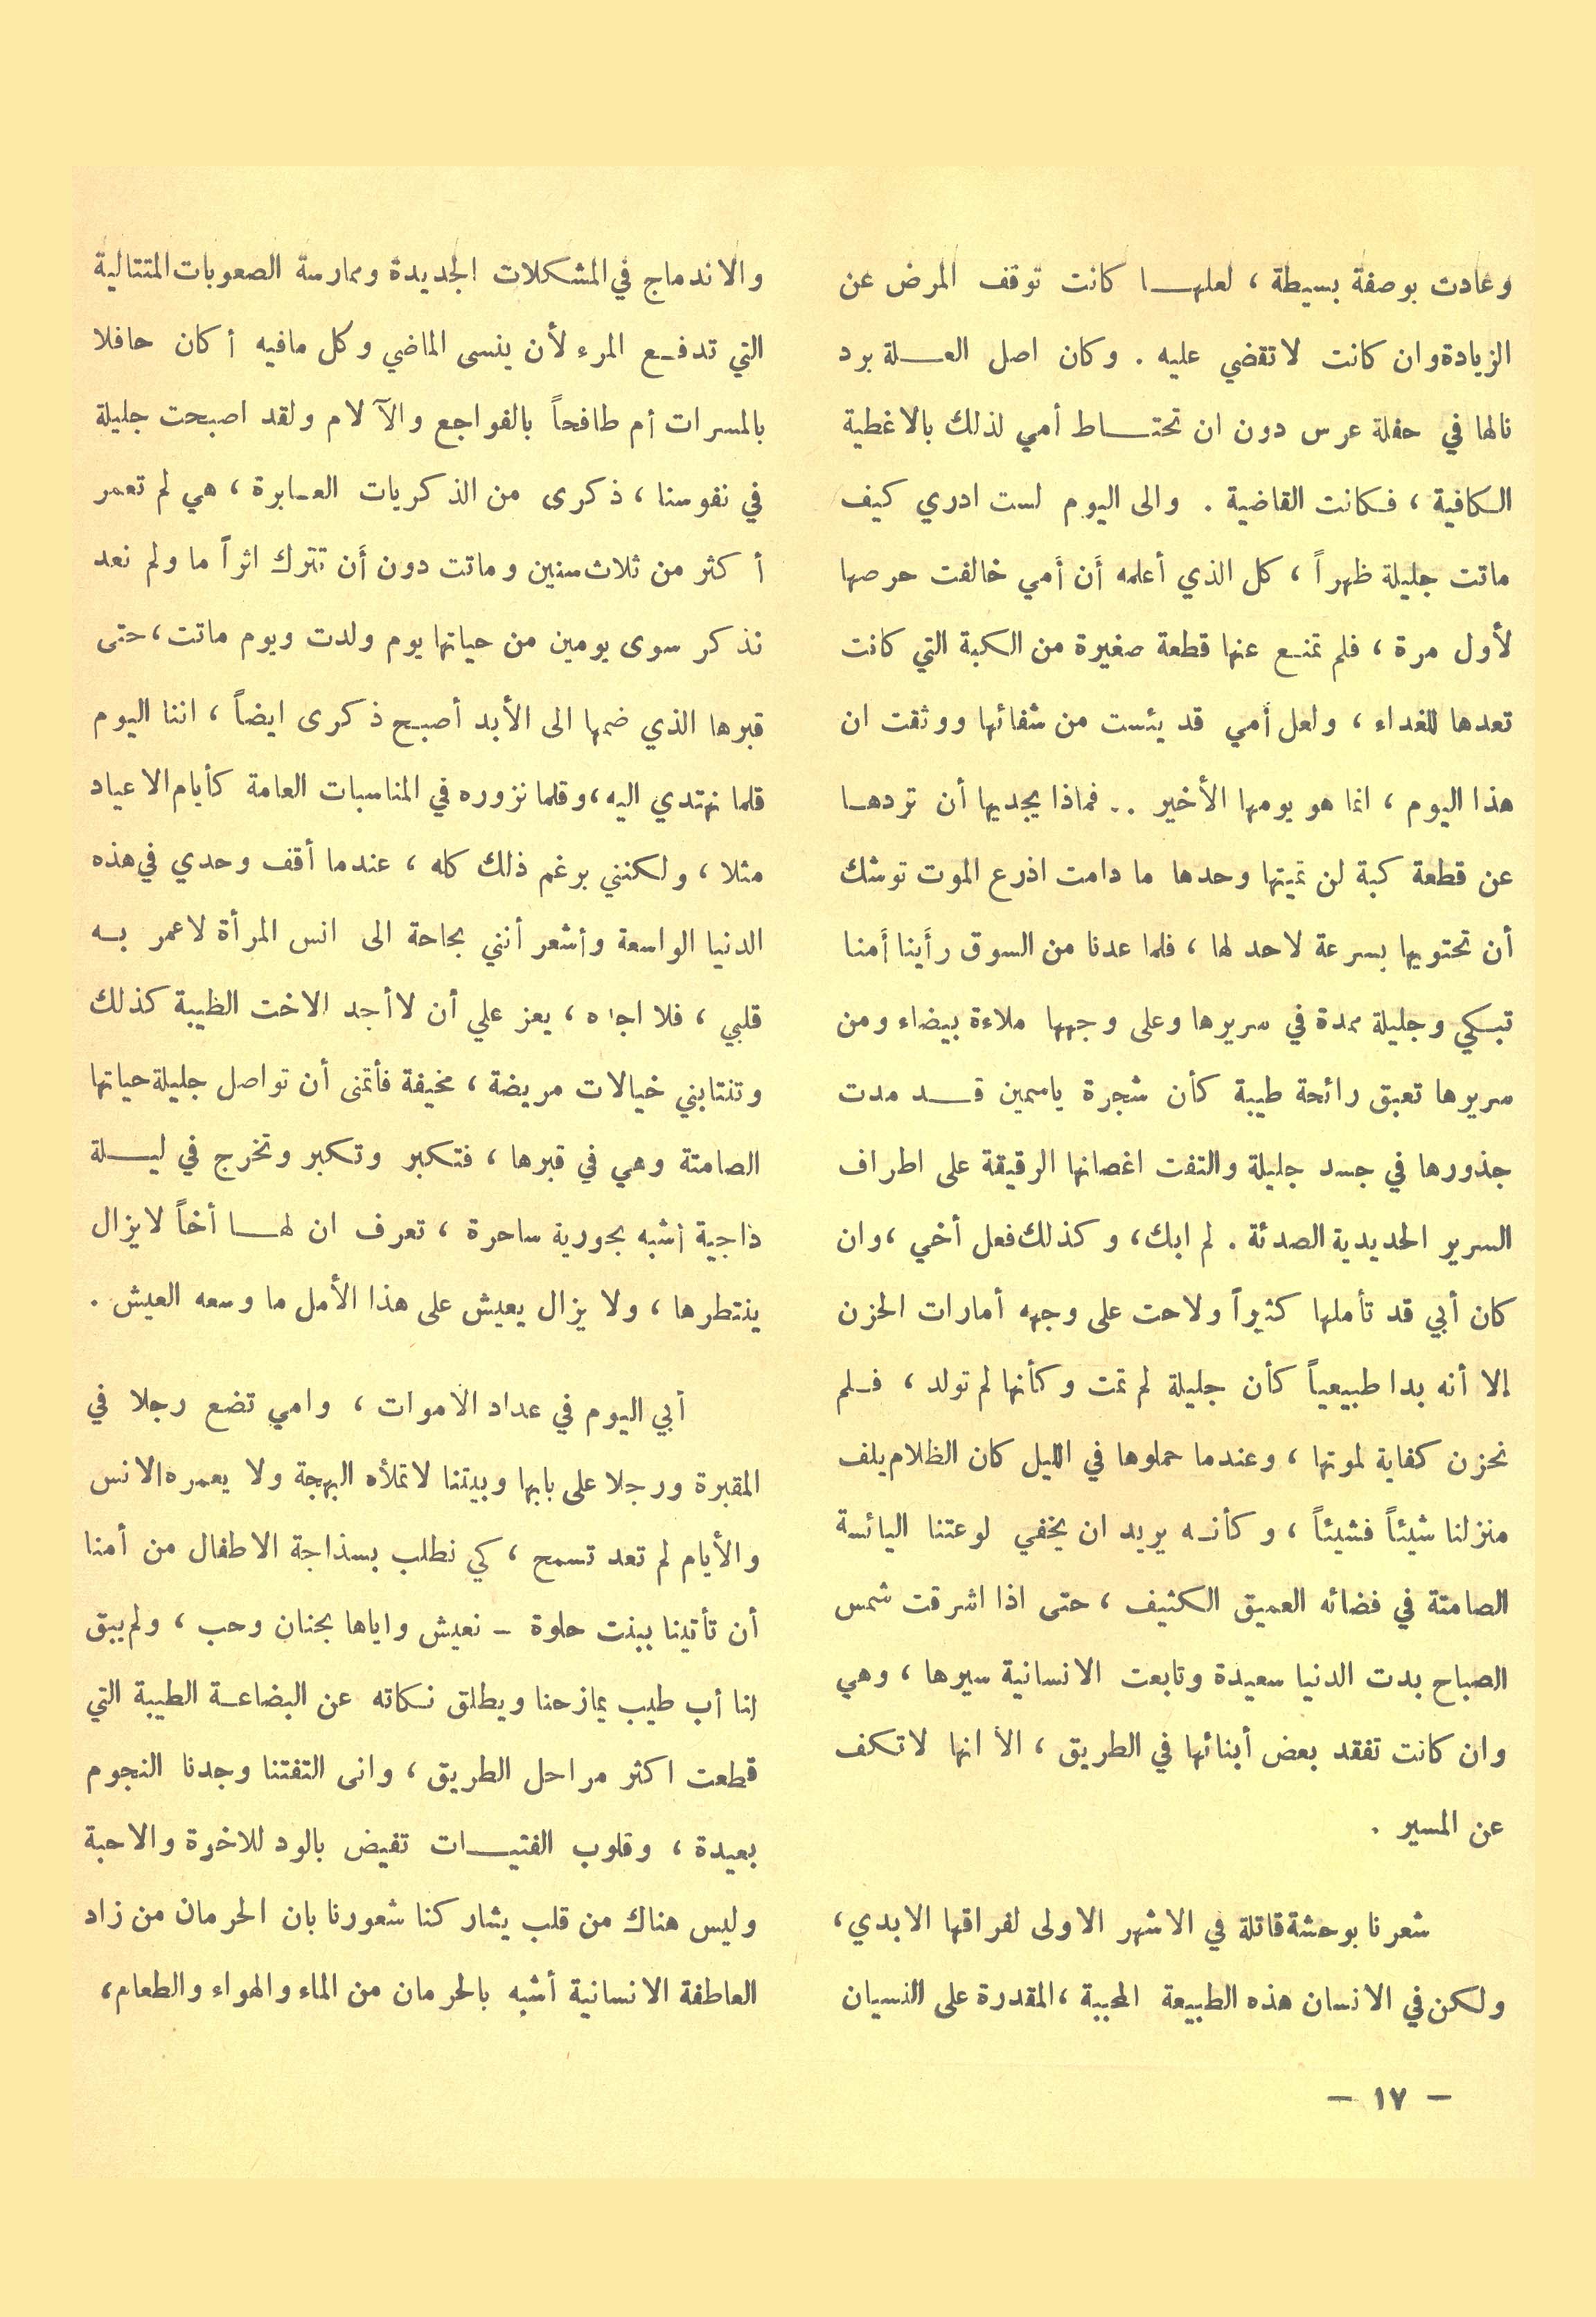 وعادت بوصفة بسيطة ، لعلهــا كانت توقف المرض عن
الزيادة وان كانت لا تقضي عليه . وكان اصل العــلة برد
نالها في حفلة عرس دون ان تحتــاط أمي لذلك بالاغطية
الكافية ، فكانت القاضية . والى اليوم لست ادري كيف
ماتت جليلة ظهراً ، كل الذي أعلمه أن أمي خالفت حرصها
لأول مرة ، فلم تمنـع عنها قطعة صغيرة من الكبة التي كانت
تعدها للغداء ، ولعل أمي قد يئست من شفائها ووثقت ان
هذا اليوم ، انما هو يومها الأخير .. فماذا يجديها أن تردهـا
عن قطعة كبة لن تميتها وحدها ما دامت اذرع الموت توشك
أن تحتويها بسرعة لا حد لها ، فلما عدنا من السوق رأينا أمنا
تبكي وجليلة ممدة في سريرها وعلى وجهها ملاءة بيضاء ومن
سريرها تعبق رائحة طيبة كأن شجرة ياسمين قــد مدت
جذورها في جسد جليلة والتفت اغصانها الرقيقة على اطراف
السرير الحديدية الصدئة . لم ابك ، وكذلك فعل أخي ، وان
كان أبي قد تأملها كثيراً ولاحت على وجهه أمارات الحزن
إلا أنه بدا طبيعياً كأن جليلة لم تمت وكأنها لم تولد ، فـلم
نحزن كفاية لموتها ، وعندما حملوها في الليل كان الظلام يلف
منزلنا شيئاً فشيئاً ، وكأنـه يريد ان يخفي لوعتنا اليائسة
الصامتة في فضائه العميق الكثيف ، حتى اذا اشرقت شمس
الصباح بدت الدنيا سعيدة وتابعت الانسانية سيرها ، وهي
وان كانت تفقد بعض أبنائها في الطريق ، الا انها لا تكف
عن المسير .
شعرنا بوحشة قاتلة في الاشهر الاولى لفراقها الابدي ،
ولكن في الانسان هذه الطبيعة المحببة ، المقدرة على النسيان
والاندماج في المشكلات الجديدة وممارسة الصعوبات المتتالية
التي تدفـع المرء لأن ينسى الماضي وكل مافيه أكان حافلا
بالمسرات أم طافحاً بالفواجع والآلام ولقد اصبحت جليلة
في نفوسنا ، ذكرى من الذكريات العـابرة ، هي لم تعمر
أكثر من ثلاث سنين وماتت دون أن تترك اثراً ما ولم نعد
نذكر سوى يومين من حياتها يوم ولدت ويوم ماتت ، حتى
قبرها الذي ضمها الى الأبد أصبح ذكرى ايضاً ، اننا اليوم
قلما نهتدي اليه ، وقلما نزوره في المناسبات العامة كأيام الاعياد
مثلا ، ولكنني برغم ذلك كله ، عندما أقف وحدي في هذه
الدنيا الواسعة وأشعر أنني بحاجة الى انس المرأة لاعمر بـه
قلبي ، فلا اجده ، يعز علي أن لا أجد الاخت الطيبة كذلك
وتنتابني خيالات مريضة ، مخيفة فأتمنى أن تواصل جليلة حياتها
الصامتة وهي في قبرها ، فتكبر وتكبر وتخرج في ليــلة
داجية أشبه بحورية ساحرة ، تعرف ان لهــا أخاً لا يزال
ينتطرها ، ولا يزال يعيش على هذا الأمل ما وسعه العيش .
أبي اليوم في عداد الاموات ، وامي تضع رجلا في
المقبرة ورجلا على بابها وبيتنا لا تملأه البهجة ولا يعمره الانس
والأيام لم تعد تسمح ، كي نطلب بسذاجة الاطفال من أمنا
أن تأتينا ببنت حلوة – نعيش واياها بحنان وحب ، ولم يبق
لنا أب طيب يمازحنا ويطلق نكاته عن البضاعـة الطيبة التي
قطعت اكثر مراحل الطريق ، وانى التفتنا وجدنا النجوم
بعيدة ، وقلوب الفتيــات تفيض بالود للاخوة والاحبة
وليس هناك من قلب يشاركنا شعورنا بان الحرمان من زاد
العاطفة الانسانية أشبه بالحرمان من الماء والهواء والطعام ،
– ١٧ –